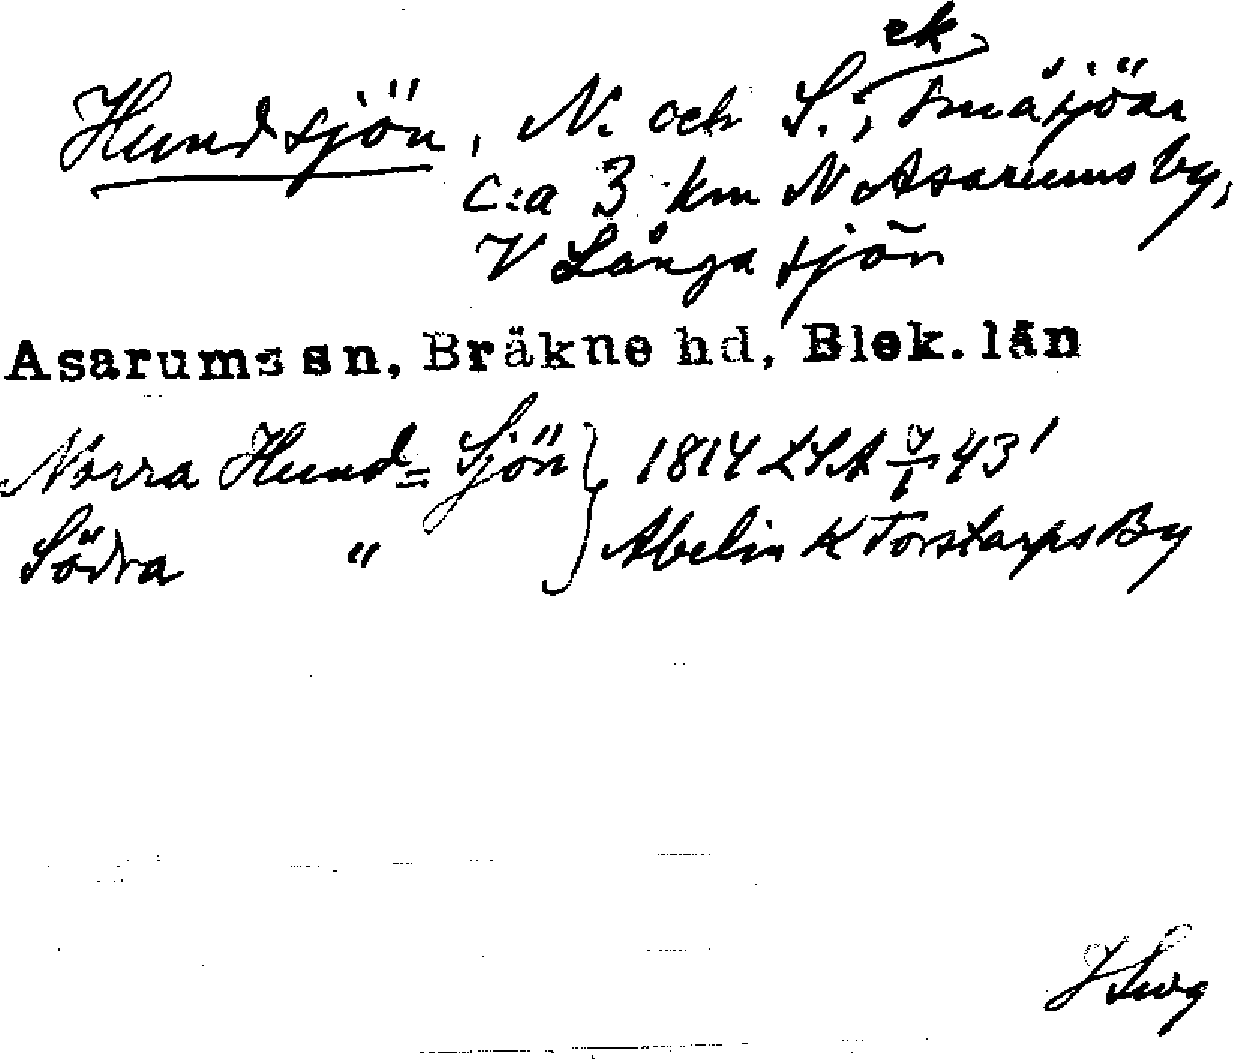 ek
Hundsjön, N. och S.; småsjöar
c:a 3 km N Asarums by,
V Långasjön
Asarums sn, Bräkne hd, Blek. län
Norra Hund= Sjön } 1814 LSA 43'
Södra " } Abelin K Torstarps By